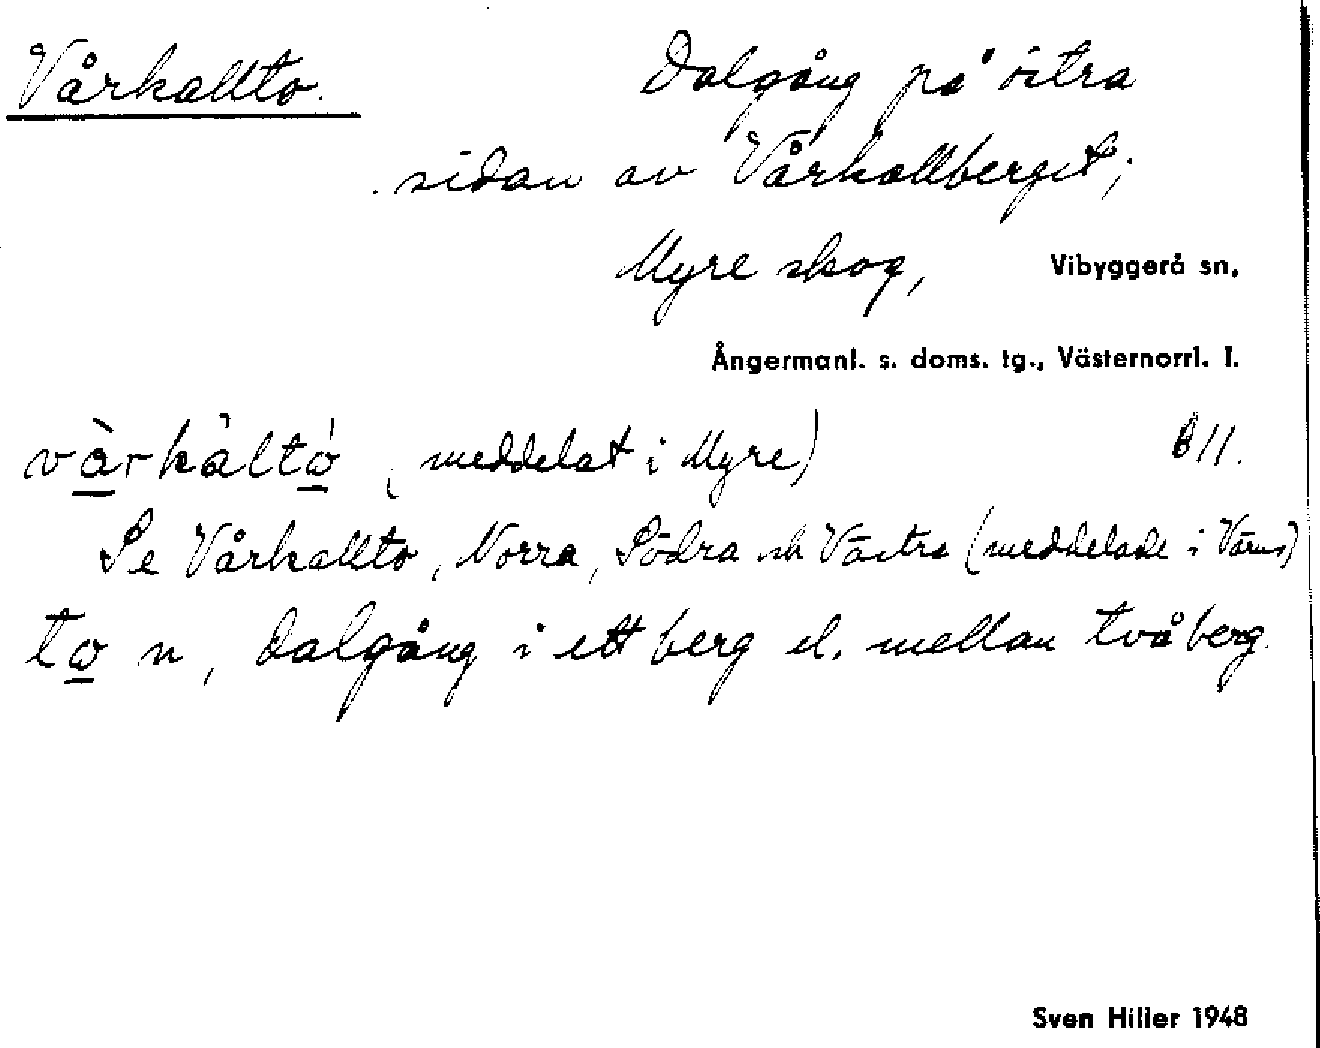 Vårkallto.
Dalgång på östra
sidan av Vårkallberget;
Myre skog, Vibyggerå sn.
Ångermanl. s. doms. tg., Västernorrl. l.
vàrkàltó (meddelat i Myre) B 11.
Se Vårkallto, Norra, Södra och Västra (meddelade i
to n, dalgång i ett berg el. mellan två berg.
Sven Hiller 1948